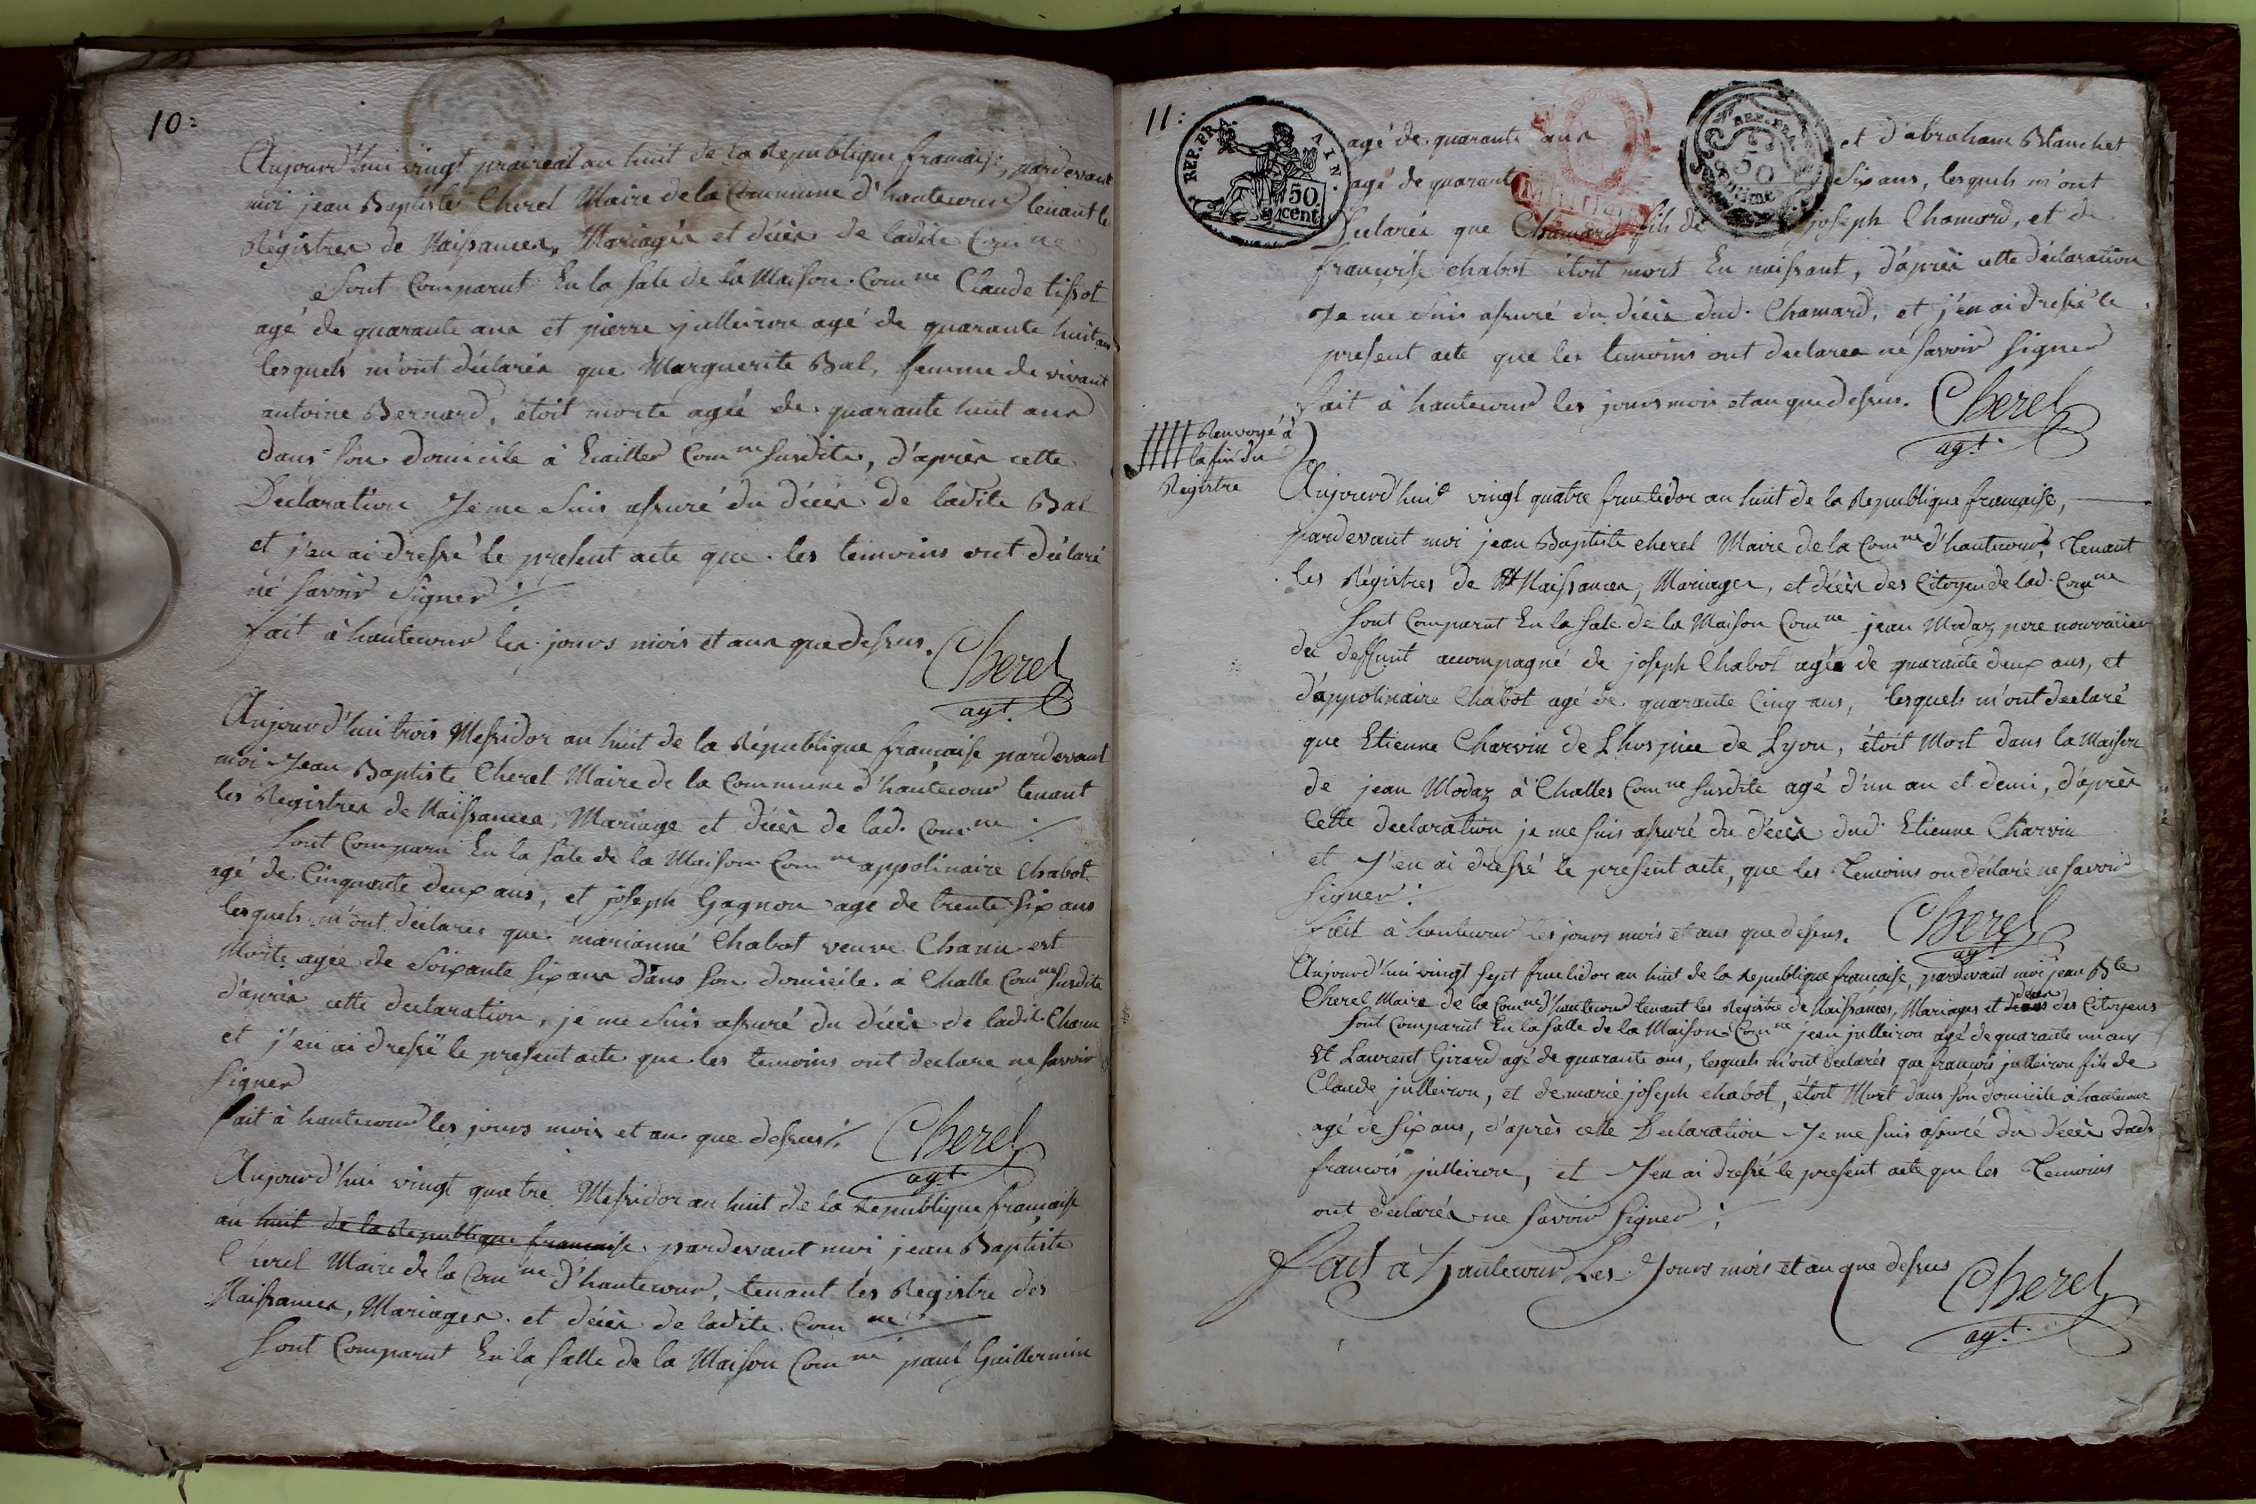 10 =
Aujourd'hui vingt prairéal an huit de la République française, pardevant
moi jean Baptiste Cherel Maire de la Commune d'hautecour tenant le
Régistres de Naissances, Mariages et décès de ladite Com ne
Sont Comparut En la Sale de la Maison Com ne Claude tissot
agé de quarante ans et pierre julleiron agé de quarante huit ans
lesquels m'ont déclarés que Marguerite Bal, femme de vivant
antoine Bernard, étoit morte agée de quarante huit ans
dans son domicile à Com ne susdite, d'après cette
Déclaration Je me suis assuré du décès de ladite Bal
et j'en ai dressé le present acte que les temoins ont déclaré
ne savoir Signer ./.
fait à hautecour les jours mois et ans que dessus. Cherel
agt.
Aujourd'hui trois Messidor an huit de la République française pardevant
moi Jean Baptiste Cherel Maire de la Commune d'hautecour tenant
les Registres de Naissances, Mariage et décès de lad. Com ne ./.
Sont Comparu En la Sale de la Maison Com ne appolinaire Chabot
agé de Cinquante deux ans, et joseph Gagnon agé de trente six ans
lesquels m'ont déclarés que marianne Chabot veuve Chanu est
Morte agée de Soixante six ans dans son domicile à Challe Com ne susdite
d'après cette declaration, je me suis assuré du décès de ladite Chanu
et j'en ai dressé le present acte que les temoins ont declare ne savoir
Signer
fait à hautecour les jours mois et an que dessus ./. Cherel
agt
Aujourd'hui vingt quatre Messidor an huit de la République française
an huit de la Republique française pardevant moi jean Baptiste
Cherel Maire de la Com ne d'hautecour, tenant les Registre des
Naissances, Mariages et décès de ladite Com ne
Sont Comparut En la Salle de la Maison Com ne paul Guillermin
11 :
REP. FRA. AIN.
50 cent.
agé de quarante ans et d'abraham Blanchet
agé de quarante Six ans, lesquels m'ont
Declarés que Chamard fils de joseph Chamard, et de
françoise chabot étoit mort En naissant, d'après cette déclaration
Je me suis assuré du décès dud. Chamard, et j'en ai dressé le
present acte que les temoins ont declarer ne savoir Signer
fait à hautecour les jours mois et an que dessus. Cherel
agt.
Renvoyé à
la fin du
Registre
Aujourd'hui vingt quatre fructidor an huit de la République française,
pardevant moi jean Baptiste cherel Maire de la Com ne d'hautecour, Tenant
les Régistres de Naissances, Mariages, et décès des Citoyen de lad. Com ne
Sont Comparut En la Sale de la Maison Com ne jean Modaz pere nourricier
du deffunt acompagné de joseph Chabot agée de quarante deux ans, et
d'appolinaire Chabot agé de quarante Cinq ans, lesquels m'ont declaré
que Etienne Charvin de L'hospice de Lyon, étoit Mort dans la Maison
de jean Modaz à Challes Com ne susdite agé d'un an et demi, d'après
Cette declaration je me suis assuré du décès dud. Etienne Charvin
et J'en ai dressé le present acte, que les Temoins on déclaré ne savoir
Signer ./.
fait à hautecour les jours mois et ans que dessus. Cherel
agt
Aujourd'hui vingt sept fructidor an huit de la Republique française, pardevant moi jean Bte
Cherel Maire de la Com ne d'hautecour tenant les Registre de Naissances, Mariages et décès des Citoyens
Sont Comparut En la Salle de la Maison Com ne jean julleiron agé de quarante un ans
Et Laurent Girard agé de quarante ans, lesquels m'ont declarés que françois julleiron fils de
Claude julleiron, et de marie joseph chabot, étoit Mort dans son domicile à hautecour
agé de six ans, d'après cette Declaration Je me suis assuré du décès dud.
françois julleiron, et J'en ai dressé le present acte que les Temoins
ont declarés ne savoir Signer ./.
Fait à hautecour Les Jours mois et an que dessus Cherel
agt.